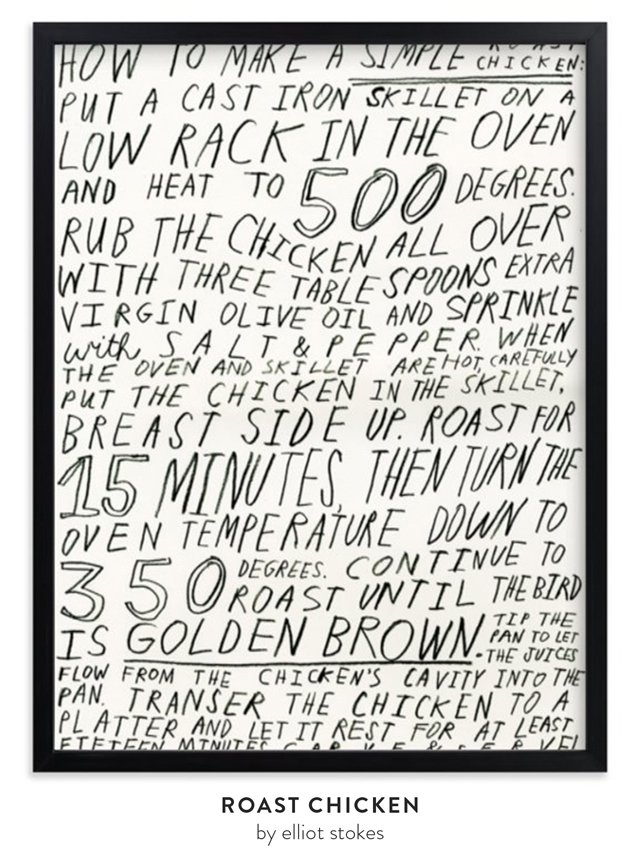 HOW TO MAKE A SIMPLE ROAST CHICKEN:
PUT A CAST IRON SKILLET ON A
LOW RACK IN THE OVEN
AND HEAT TO 500 DEGREES.
RUB THE CHICKEN ALL OVER
WITH THREE TABLESPOONS EXTRA
VIRGIN OLIVE OIL AND SPRINKLE
with SALT & PEPPER. WHEN
THE OVEN AND SKILLET ARE HOT, CAREFULLY
PUT THE CHICKEN IN THE SKILLET,
BREAST SIDE UP. ROAST FOR
15 MINUTES, THEN TURN THE
OVEN TEMPERATURE DOWN TO
350 DEGREES. CONTINUE TO
ROAST UNTIL THE BIRD
IS GOLDEN BROWN. TIP THE
PAN TO LET
THE JUICES
FLOW FROM THE CHICKEN'S CAVITY INTO THE
PAN. TRANSER THE CHICKEN TO A
PLATTER AND LET IT REST FOR AT LEAST
MINUTES CARVE & SERVE!
ROAST CHICKEN
by elliot stokes